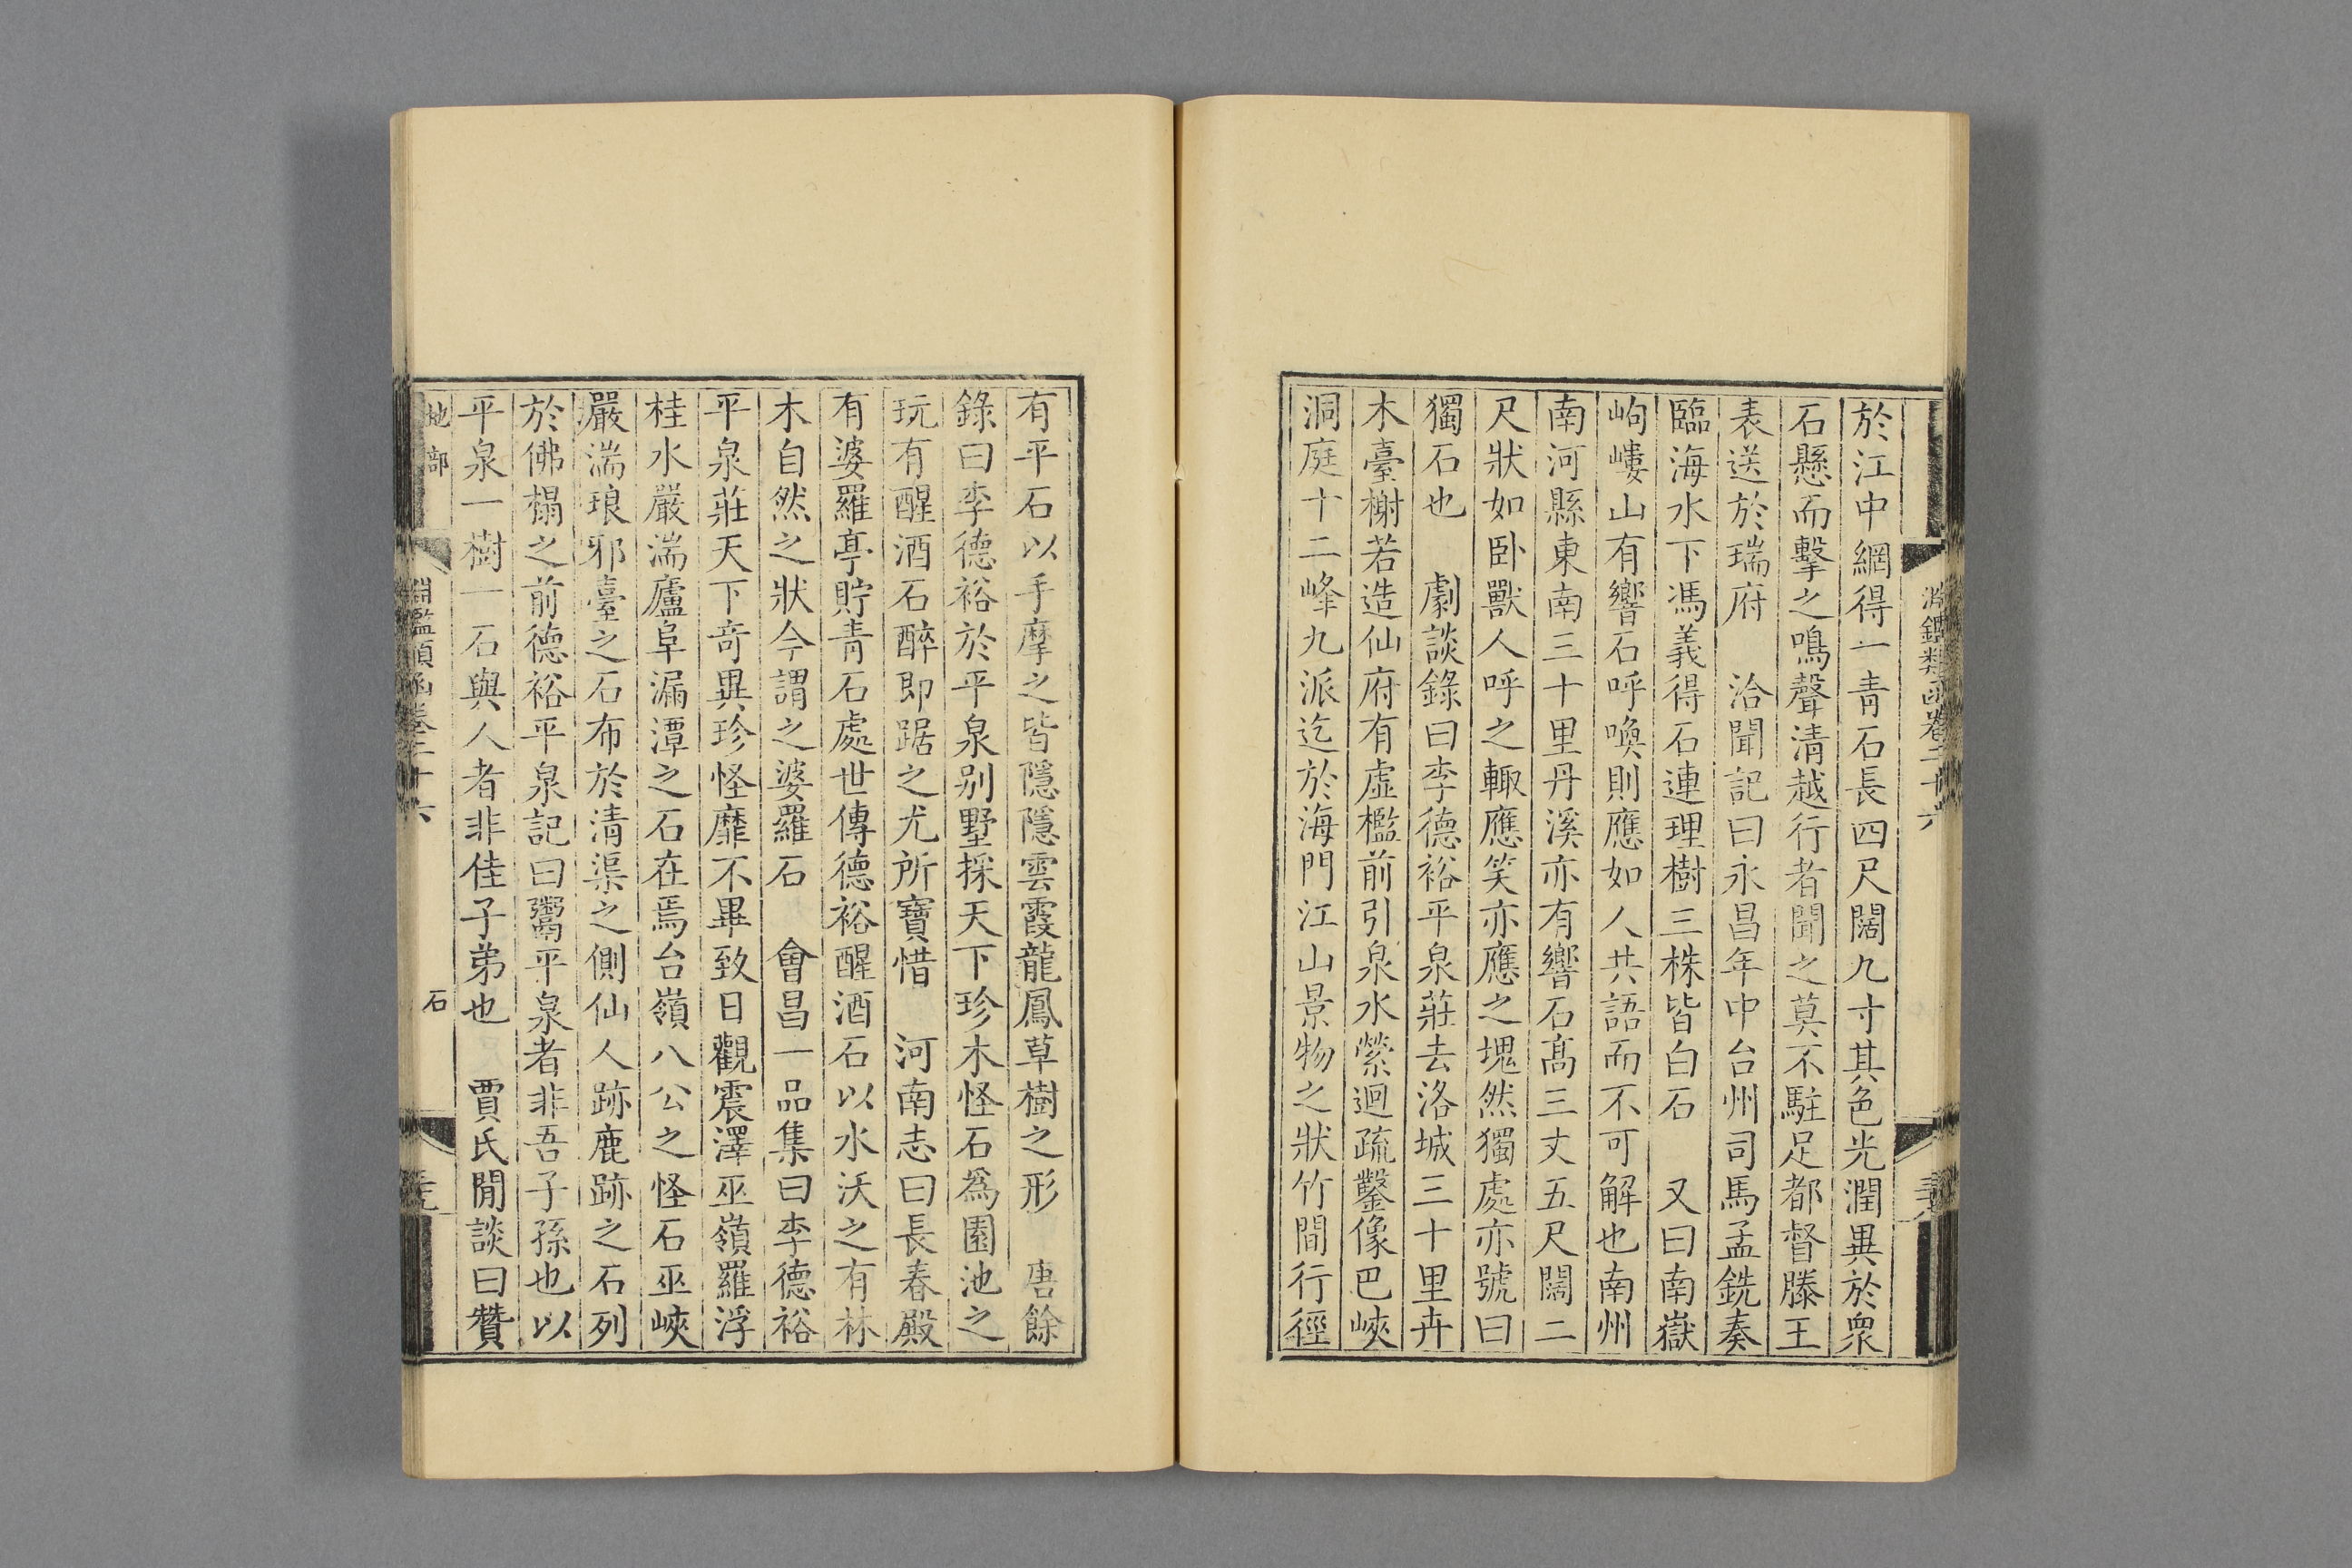 淵鑑類函卷二十六
於江中網得一青石長四尺闊九寸其色光潤異於衆
石懸而擊之鳴聲清越行者聞之莫不駐足都督滕王
表送於瑞府 洽聞記曰永昌年中台州司馬孟銑奏
臨海水下馮義得石連理樹三株皆白石 又曰南嶽
岣嶁山有響石呼喚則應如人共語而不可解也南州
南河縣東南三十里丹溪亦有響石高三丈五尺闊二
尺狀如卧獸人呼之輙應笑亦應之塊然獨處亦號曰
獨石也 劇談錄曰李德裕平泉莊去洛城三十里卉
木臺榭若造仙府有虛檻前引泉水縈迴疏鑿像巴峽
洞庭十二峰九派迄於海門江山景物之狀竹間行徑
有平石以手摩之皆隱隱雲霞龍鳳草樹之形 唐餘
錄曰李德裕於平泉别墅採天下珍木怪石爲園池之
玩有醒酒石醉即踞之尤所寶惜 河南志曰長春殿
有婆羅亭貯青石處世傳德裕醒酒石以水沃之有林
木自然之狀今謂之婆羅石 會昌一品集曰李德裕
平泉莊天下竒異珍怪靡不畢致日觀震澤巫嶺羅浮
桂水嚴湍廬阜漏潭之石在焉台嶺八公之怪石巫峽
嚴湍琅邪臺之石布於清渠之側仙人跡鹿跡之石列
於佛榻之前德裕平泉記曰鬻平泉者非吾子孫也以
平泉一樹一石與人者非佳子弟也 賈氏閒談曰贊
地部 淵鑑類函卷二十六 石